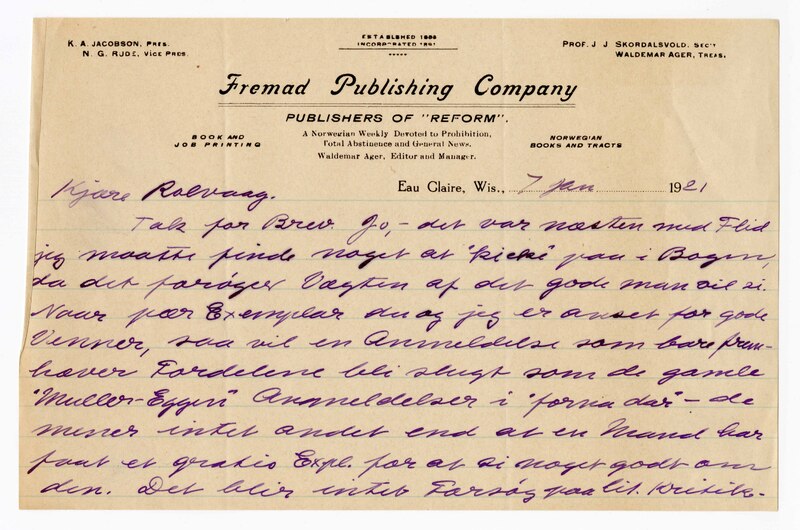 K. A. JACOBSON, PRES.
N. G. RUDE, VICE PRES.
ESTABLISHED 1886
INCORPORATED 1891
PROF. J J SKORDALSVOLD, SEC'Y
WALDEMAR AGER, TREAS.
Fremad Publishing Company
PUBLISHERS OF "REFORM".
BOOK AND
JOB PRINTING
A Norwegian Weekly Devoted to Prohibition,
Total Abstinence and General News.
Waldemar Ager, Editor and Manager.
NORWEGIAN
BOOKS AND TRACTS
Eau Claire, Wis., 7 Jan 1921
Kjære Rolvaag.
Tak for Brev. Jo, - det var næsten med Flid
jeg maatte finde noget at "kicke" paa i Bogen,
da det forøger Vægten af det gode man vil si.
Naar pær Exemplar du og jeg er anset for gode
Venner, saa vil en Anmeldelse som bare frem-
hæver Fordelene bli slugt som de gamle
"Muller-Eggen" Anmeldelser i "forna dar" - de
mener intet andet end at en Mand har
faat et gratis Expl. for at si noget godt om
den. Det blir intet Forsøg paa lit. Kritik-